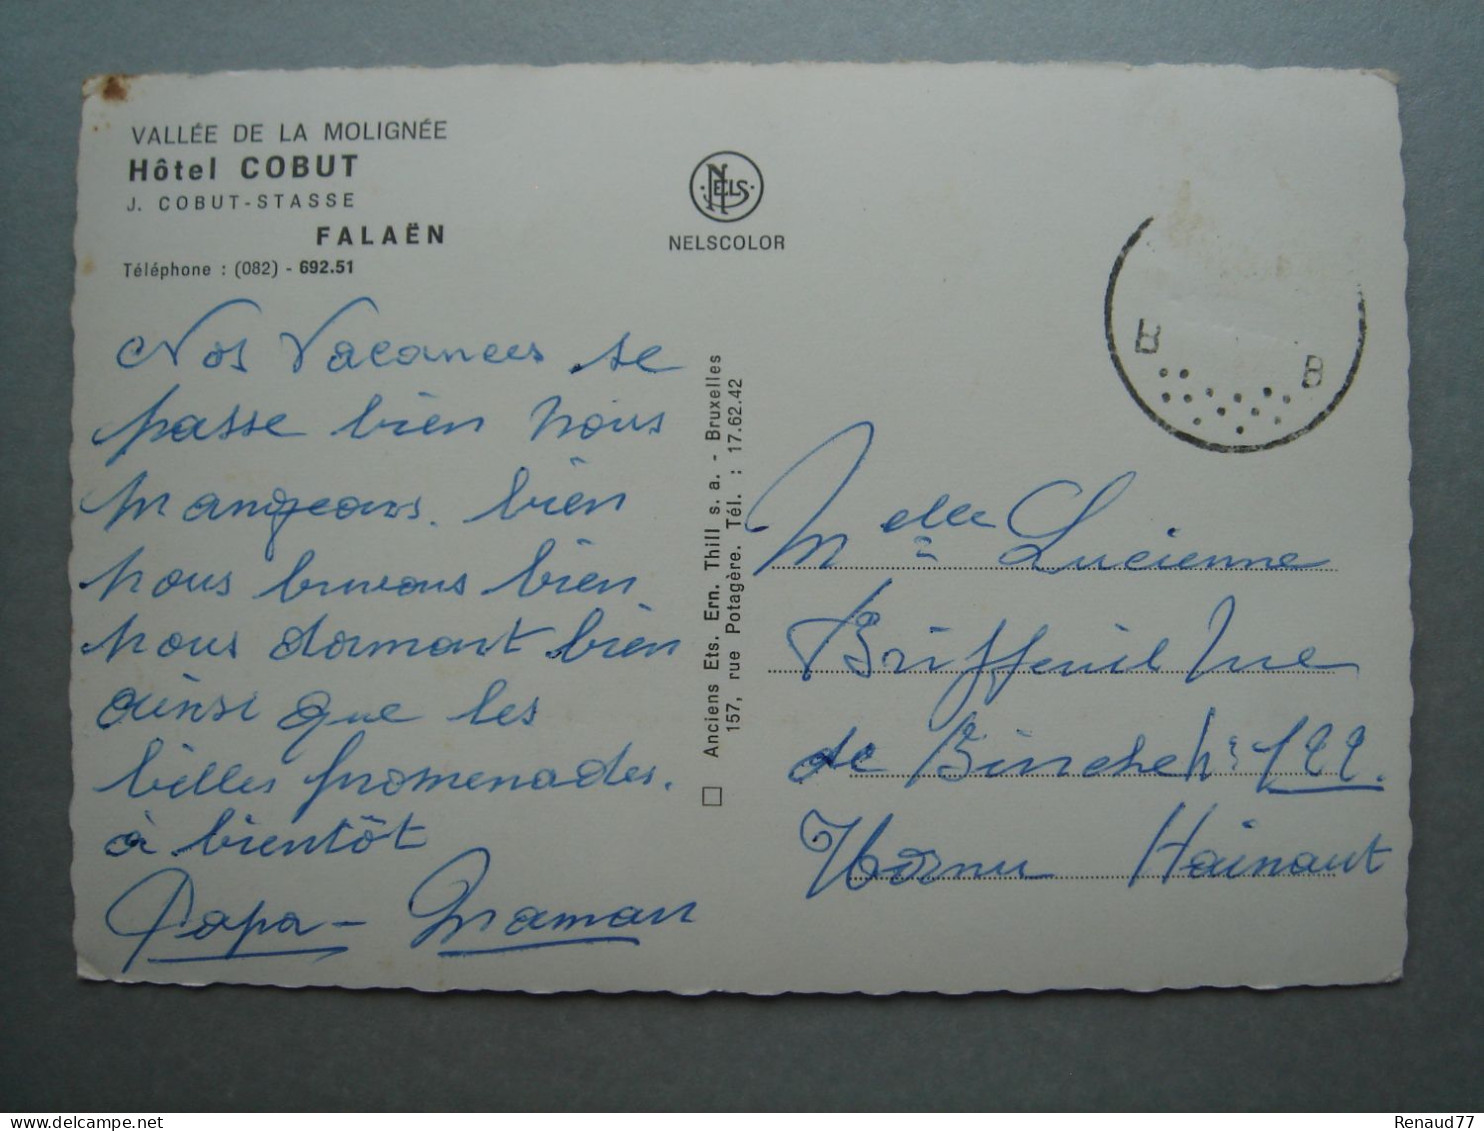 VALLÉE DE LA MOLIGNÉE
Hôtel COBUT
J. COBUT-STASSE
FALAËN
Téléphone : (082) - 692.51
NELS
NELSCOLOR
B B
Nos Vacances se
passe bien nous
mangeons. bien
nous buvons bien
nous dormont bien
ainsi que les
belles promenades.
à bientôt
Papa - Maman
Anciens Ets. Ern. Thill s. a. - Bruxelles
157, rue Potagère. Tél. : 17.62.42
Melle Lucienne
Briffeuil rue
de Binche n° 122.
Hornu Hainaut
Renaud77